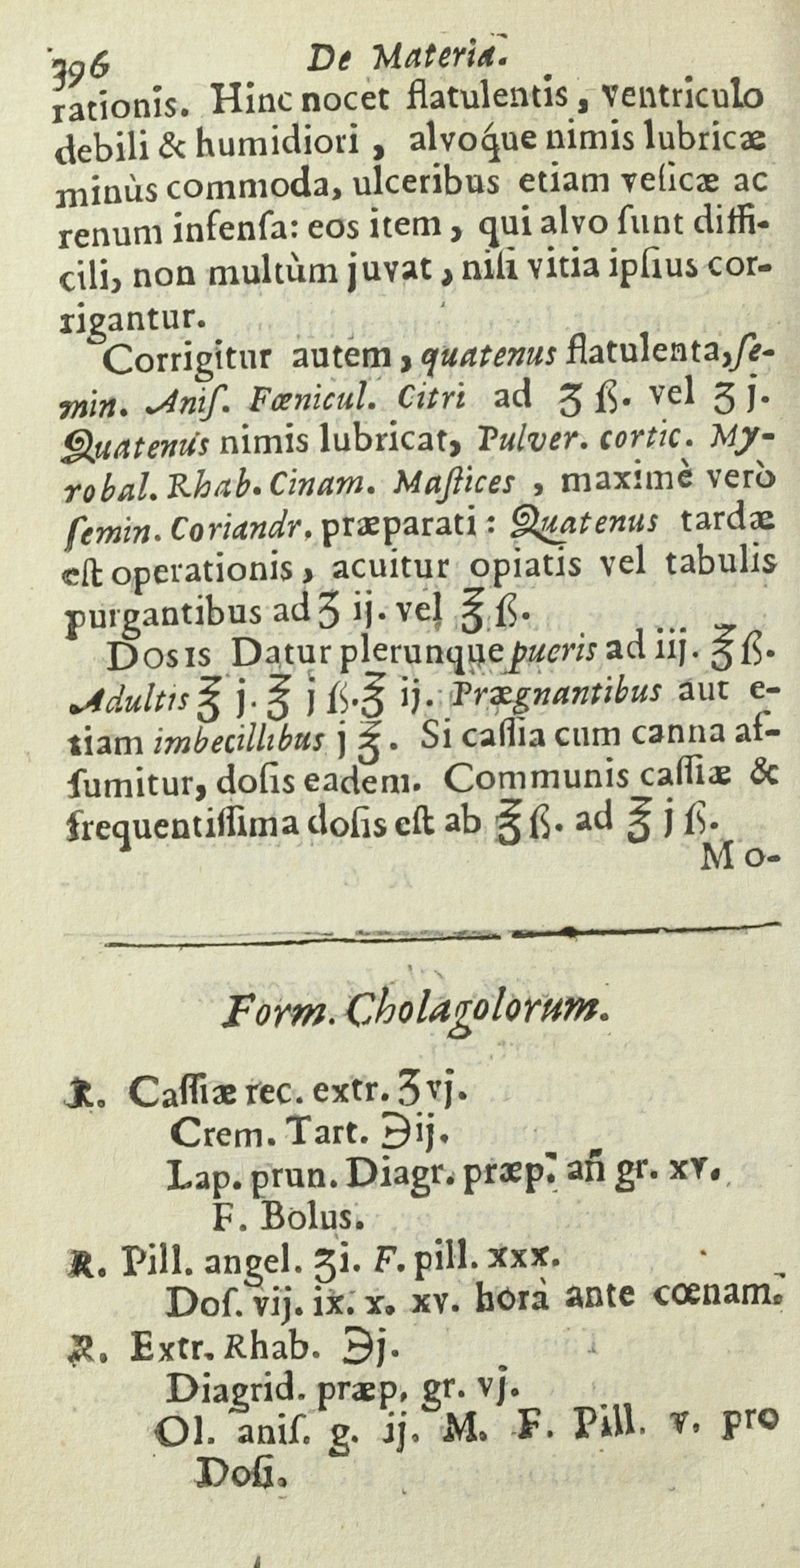 396 De Materiâ.
rationis. Hinc nocet flatulentis, ventriculo
debili & humidiori, alvoq́ue nimis lubricæ
minùs commoda, ulceribus etiam veſicæ ac
renum infenſa: eos item, qui alvo ſunt diffi-
cili, non multùm juvat, niſi vitia ipſius cor-
rigantur.
Corrigitur autem, quatenus flatulenta, ſe-
min. Aniſ. Fœnicul. Citri ad ʒ ß. vel ʒ j.
Quatenùs nimis lubricat, Pulver. cortic. My-
robal. Rhab. Cinam. Maſtices, maximè verò
ſemin. Coriandr. præparati: Quatenus tardæ
eſt operationis, acuitur opiatis vel tabulis
purgantibus ad ʒ ij. vel ℥ ß.
Dosis Datur plerunque pueris ad iij. ℥ ß.
Adultis ℥ j. ℥ j ß. ℥ ij. Prægnantibus aut e-
tiam imbecillibus j ℥. Si caſſia cum canna aſ-
ſumitur, doſis eadem. Communis caſſiæ &
frequentiſſima doſis eſt ab ℥ ß. ad ℥ j ß.
Mo-
Form. Cholagolorum.
℞. Caſſiæ rec. extr. ʒvj.
Crem. Tart. ℈ij.
Lap. prun. Diagr. præp. añ gr. xv.
F. Bolus.
℞. Pill. angel. ʒi. F. pill. xxx.
Doſ. vij. ix. x. xv. horâ ante cœnam.
℞. Extr. Rhab. ℈j.
Diagrid. præp. gr. vj.
Ol. aniſ. g. ij. M. F. Pill. v. pro
Doſi.